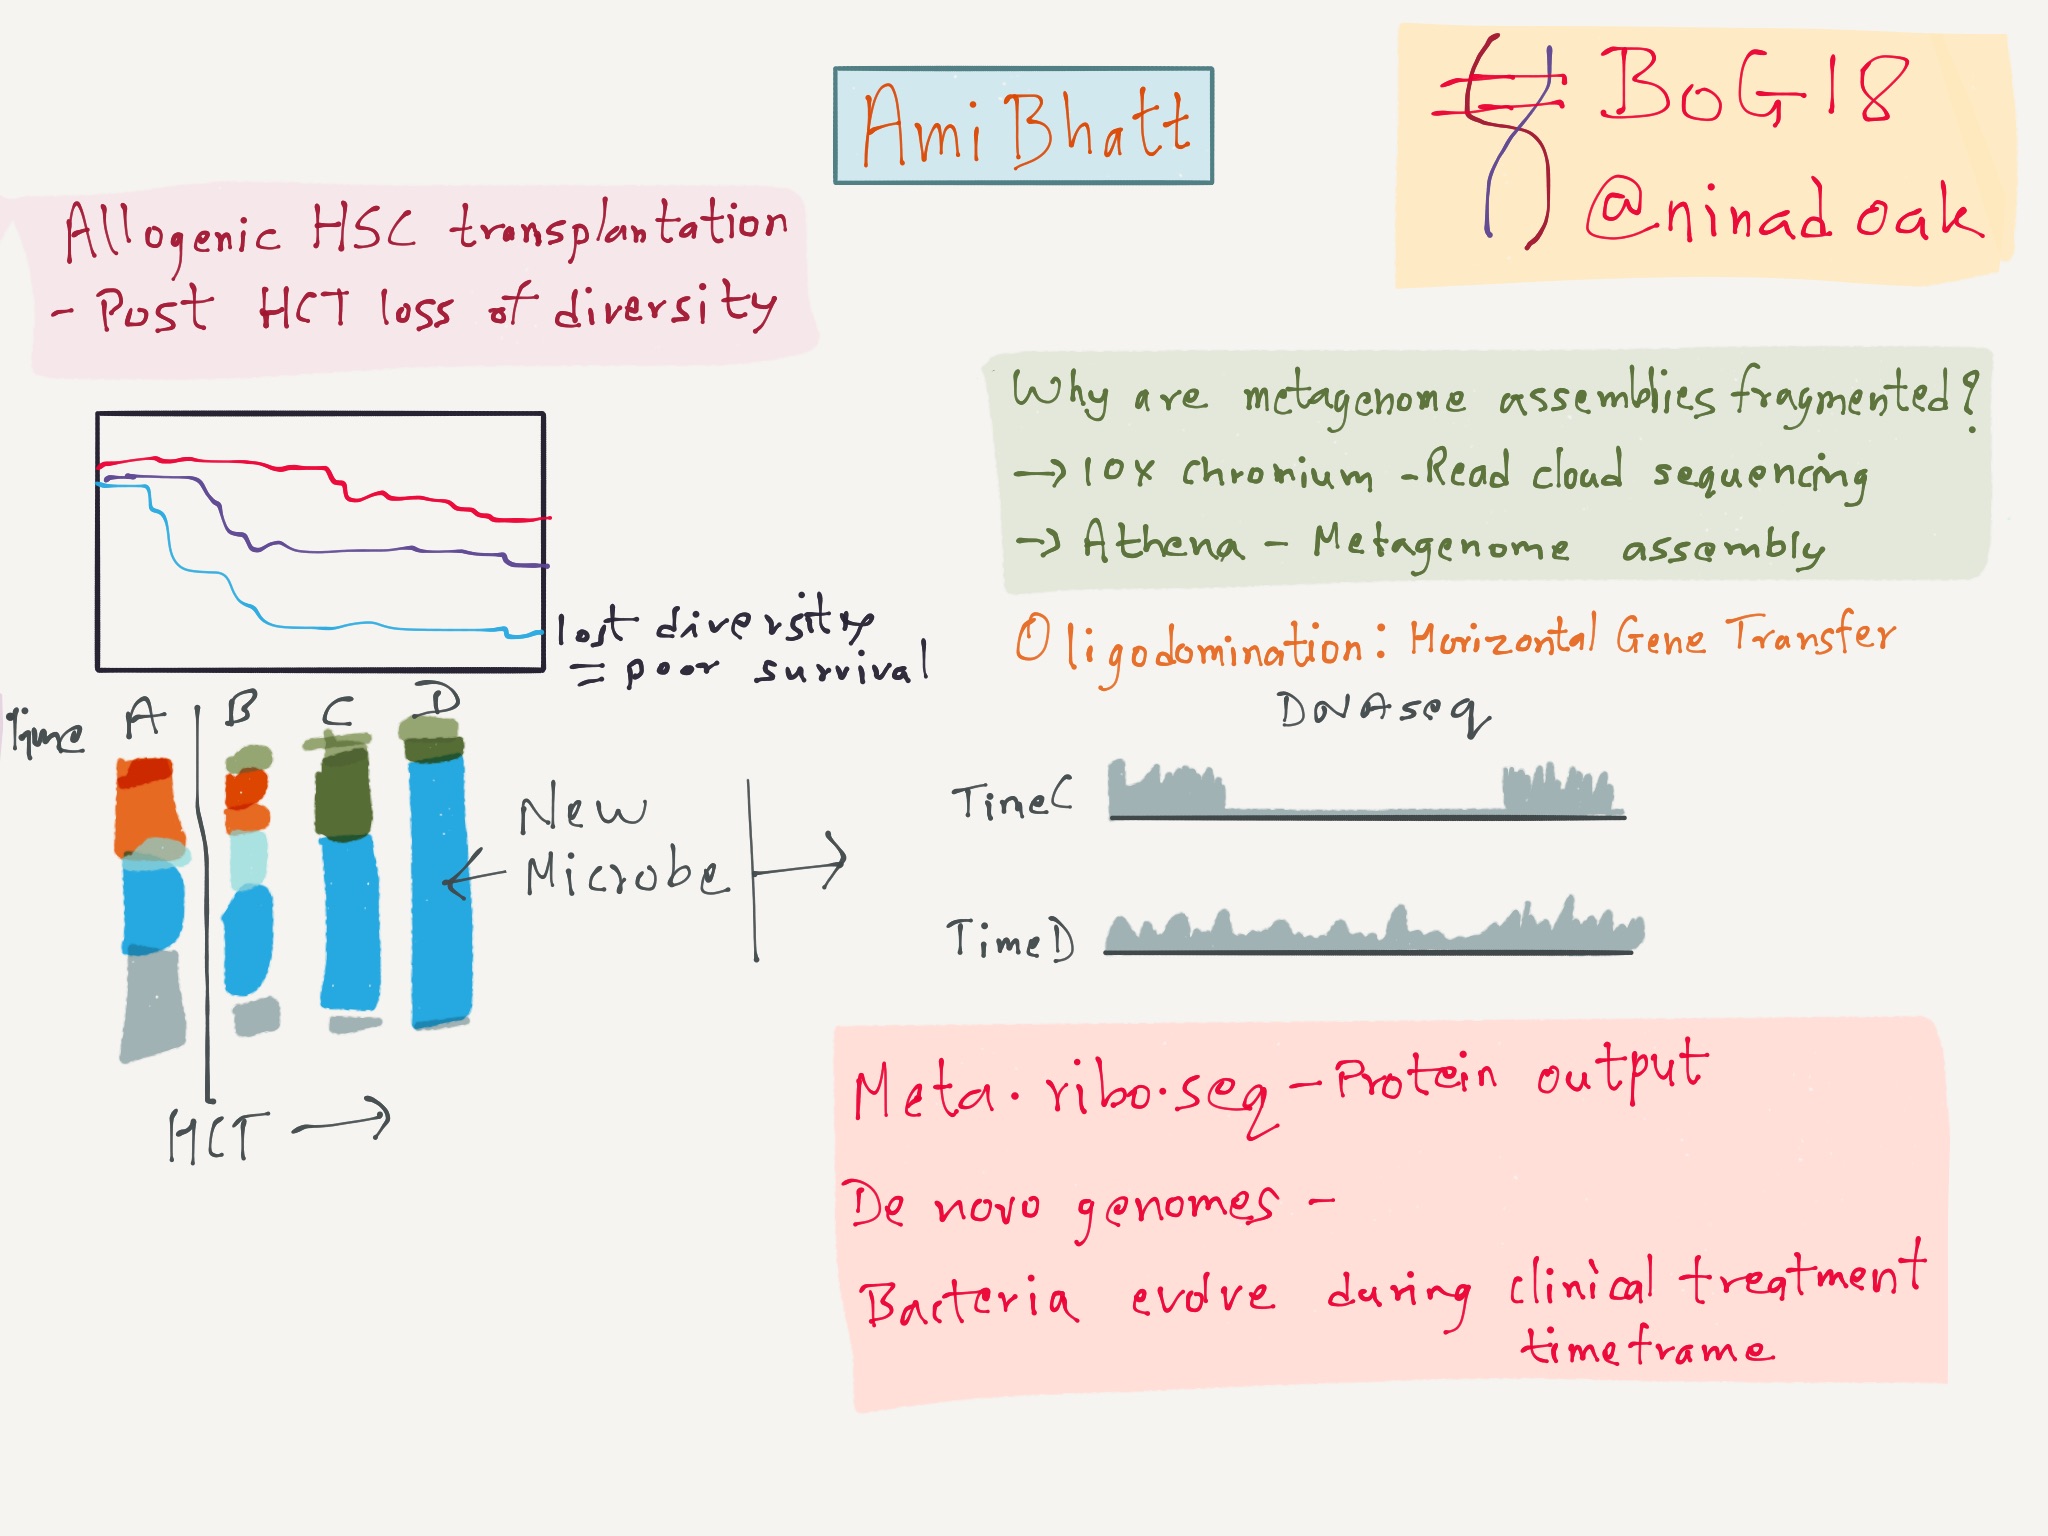 Ami Bhatt
# BoG18
@ninadoak
Allogenic HSC transplantation
- Post HCT loss of diversity
lost diversity
= poor survival
Why are metagenome assemblies fragmented?
→ 10x chromium - Read cloud sequencing
→ Athena - Metagenome assembly
Oligodomination: Horizontal Gene Transfer
Time A B C D
New
Microbe
HCT →
DNAseq
Time C
Time D
Meta.ribo.seq - Protein output
De novo genomes -
Bacteria evolve during clinical treatment
timeframe